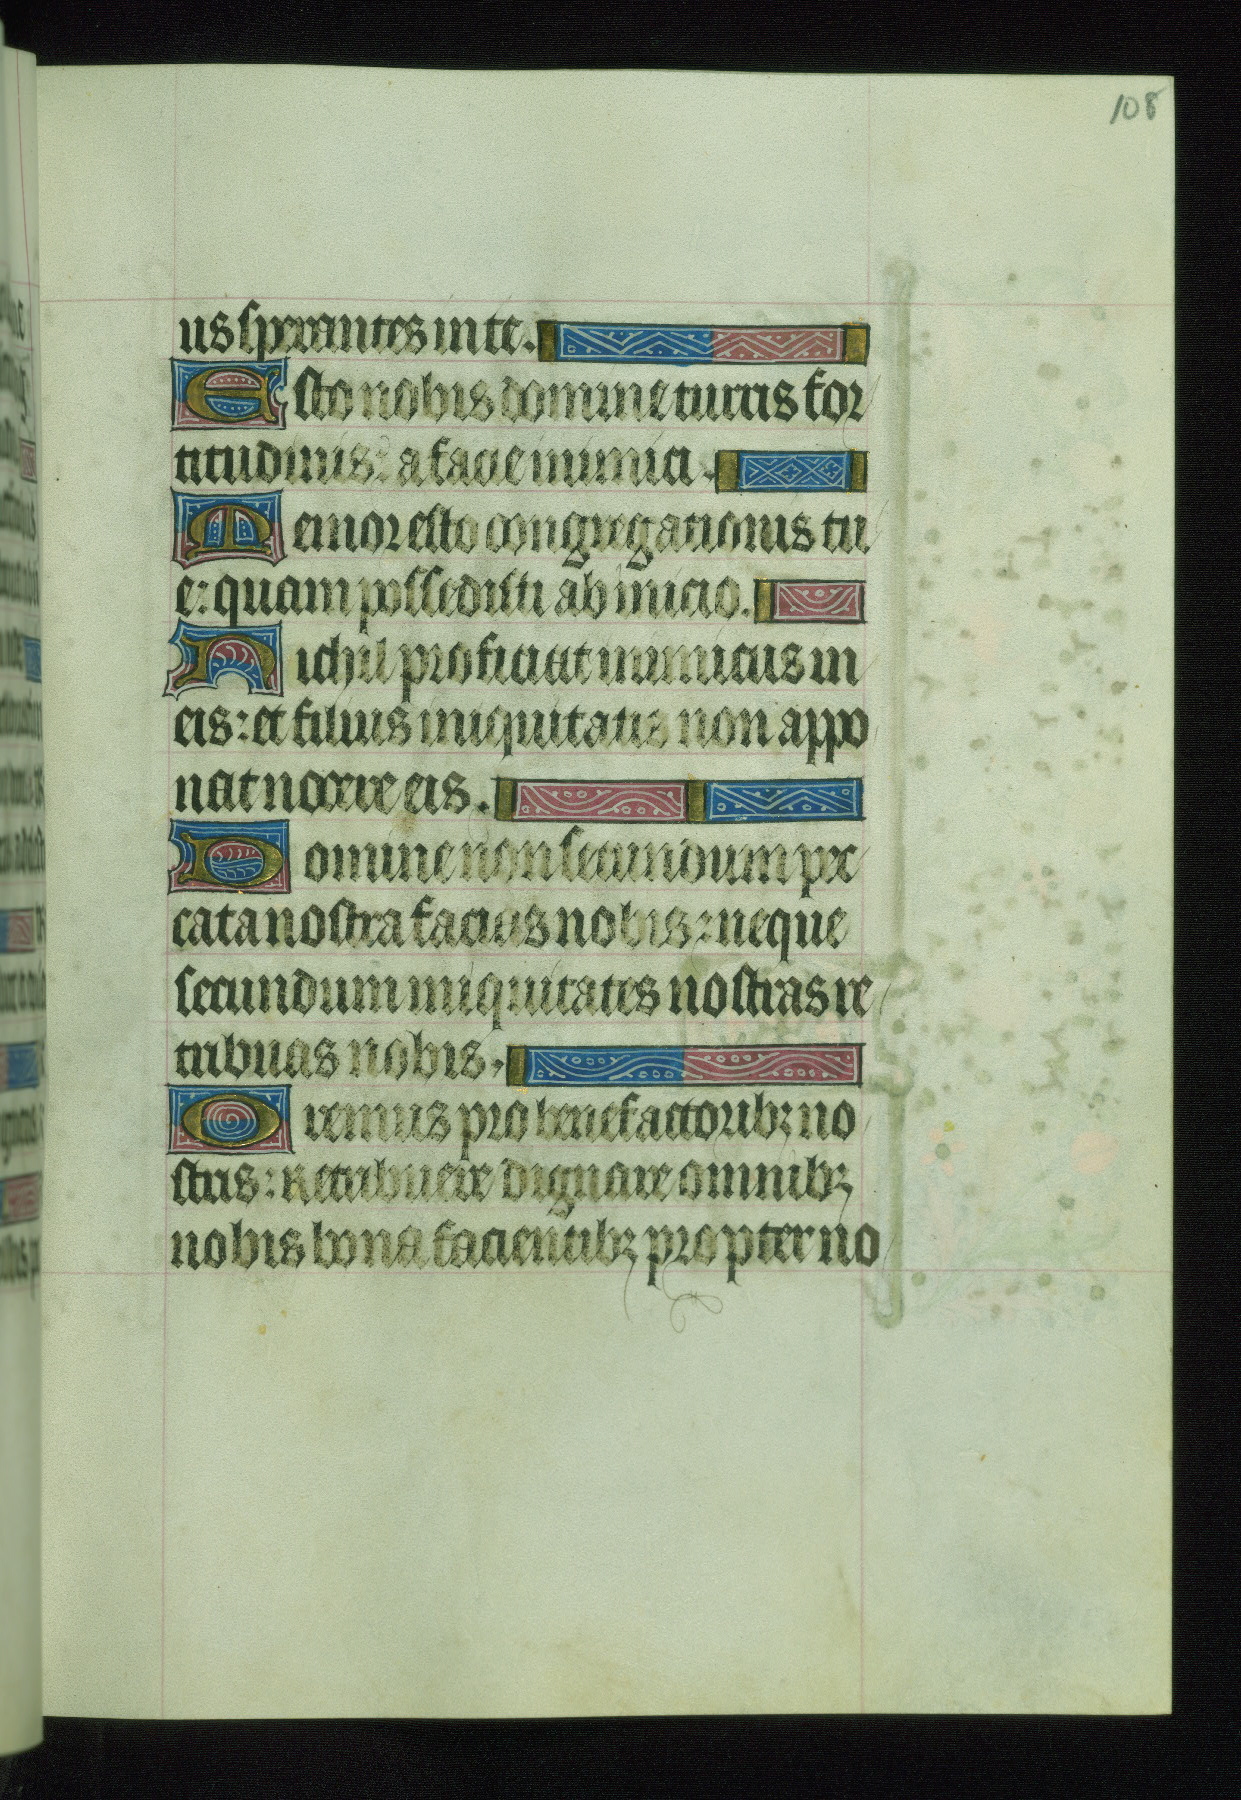 108
us sperantes in te.
Esto nobis domine turris for
titudinis: a facie inimici.
Memor esto congregationis tu
e: quam possedisti ab inicio.
Nichil proficiat inimicus in
eis: et filius iniquitatis non appo
nat nocere eis.
Domine non secundum pec
cata nostra facias nobis: neque
secundum iniquitates nostras re
tribuas nobis.
Oremus pro benefactoribꝫ no
stris: Retribuere dignare omnibꝫ
nobis bona facientibꝫ propter no